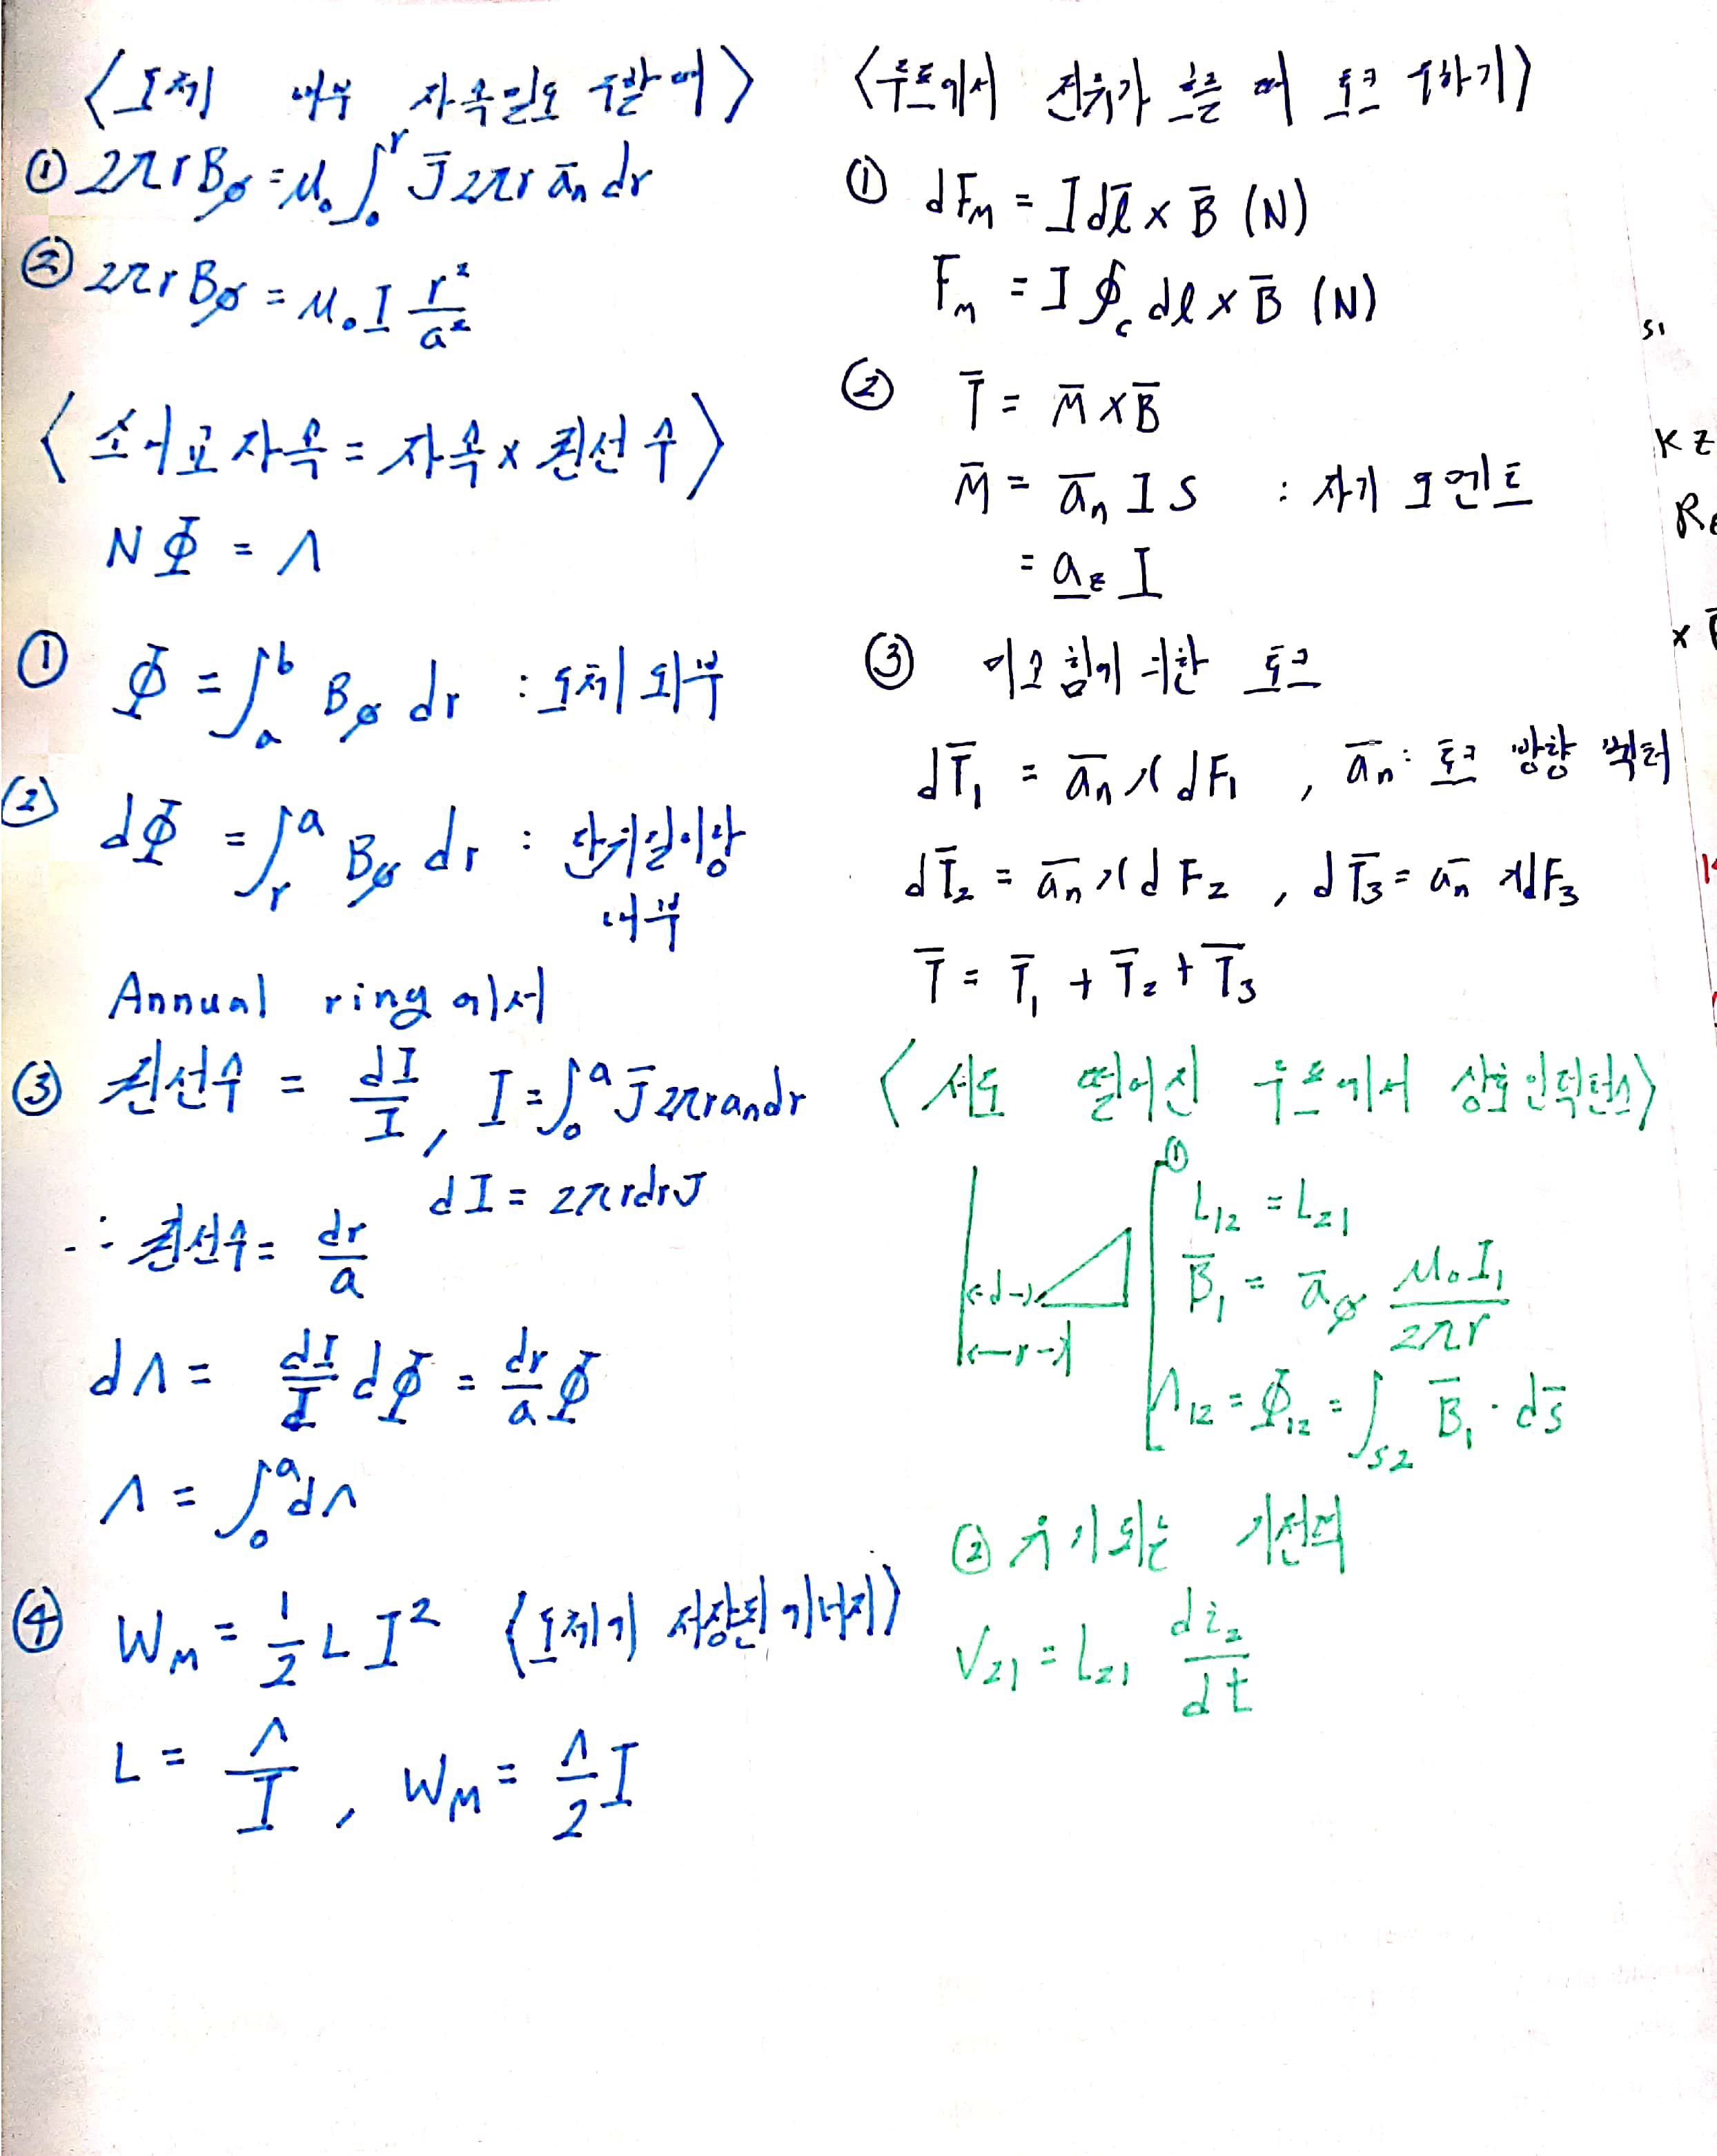 <도체 내부 자속밀도 구할 때>
① 2πrB∅ = μ₀∫₀ʳ J̄ 2πr ān dr
② 2πrB∅ = μ₀I r²/a²
<쇄교자속 = 자속 x 권선수>
NΦ = Λ
① Φ = ∫ₐᵇ B∅ dr : 도체 외부
② dΦ = ∫ᵣᵃ B∅ dr : 단위길이당
내부
Annual ring 에서
③ 권선수 = dI/I, I = ∫₀ᵃ J̄ 2πr an dr
dI = 2πrdrJ
∴ 권선수 = dr/a
dΛ = dI/I dΦ = dr/a Φ
Λ = ∫₀ᵃ dΛ
④ W_M = 1/2 L I² <도체에 저장된 에너지>
L = Λ/I, W_M = Λ/2 I
<루프에서 전류가 흐를 때 토크 구하기>
① dF_M = I dl̄ x B̄ (N)
F_M = I ∮_c dl x B̄ (N)
② T̄ = M̄ x B̄
M̄ = ān I S : 자기 모멘트
= az I
③ 미소 힘에 의한 토크
dT̄₁ = ān x dF₁, ān: 토크 방향 벡터
dT̄₂ = ān x dF₂, dT̄₃ = ān x dF₃
T̄ = T̄₁ + T̄₂ + T̄₃
<서로 떨어진 루프에서 상호인덕턴스>
①
L₁₂ = L₂₁
B̄₁ = ā∅ μ₀I₁/2πr
Λ₁₂ = Φ₁₂ = ∫_S2 B̄₁ · ds̄
d
r
② 유기되는 기전력
V₂₁ = L₂₁ di₂/dt